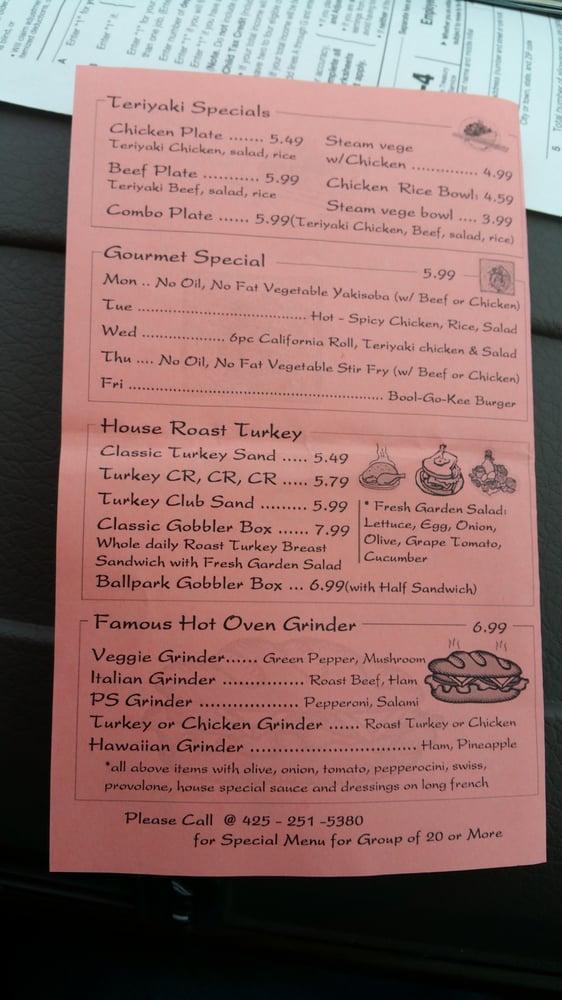 Teriyaki Specials
Chicken Plate ....... 5.49
Teriyaki Chicken, salad, rice
Beef Plate ........... 5.99
Teriyaki Beef, salad, rice
Combo Plate ...... 5.99(Teriyaki Chicken, Beef, salad, rice)
Steam vege
w/Chicken .............. 4.99
Chicken Rice Bowl: 4.59
Steam vege bowl .... 3.99
Gourmet Special 5.99
Mon .. No Oil, No Fat Vegetable Yakisoba (w/ Beef or Chicken)
Tue ........................................ Hot - Spicy Chicken, Rice, Salad
Wed .................. 6pc California Roll, Teriyaki chicken & Salad
Thu .... No Oil, No Fat Vegetable Stir Fry (w/ Beef or Chicken)
Fri ........................................................ Bool-Go-Kee Burger
House Roast Turkey
Classic Turkey Sand ..... 5.49
Turkey CR, CR, CR ..... 5.79
Turkey Club Sand ......... 5.99
Classic Gobbler Box ...... 7.99
Whole daily Roast Turkey Breast
Sandwich with Fresh Garden Salad
Ballpark Gobbler Box ... 6.99(with Half Sandwich)
* Fresh Garden Salad:
Lettuce, Egg, Onion,
Olive, Grape Tomato,
Cucumber
Famous Hot Oven Grinder 6.99
Veggie Grinder...... Green Pepper, Mushroom
Italian Grinder ................. Roast Beef, Ham
PS Grinder .................... Pepperoni, Salami
Turkey or Chicken Grinder ...... Roast Turkey or Chicken
Hawaiian Grinder ................................. Ham, Pineapple
*all above items with olive, onion, tomato, pepperocini, swiss,
provolone, house special sauce and dressings on long french
Please Call @ 425 - 251 -5380
for Special Menu for Group of 20 or More